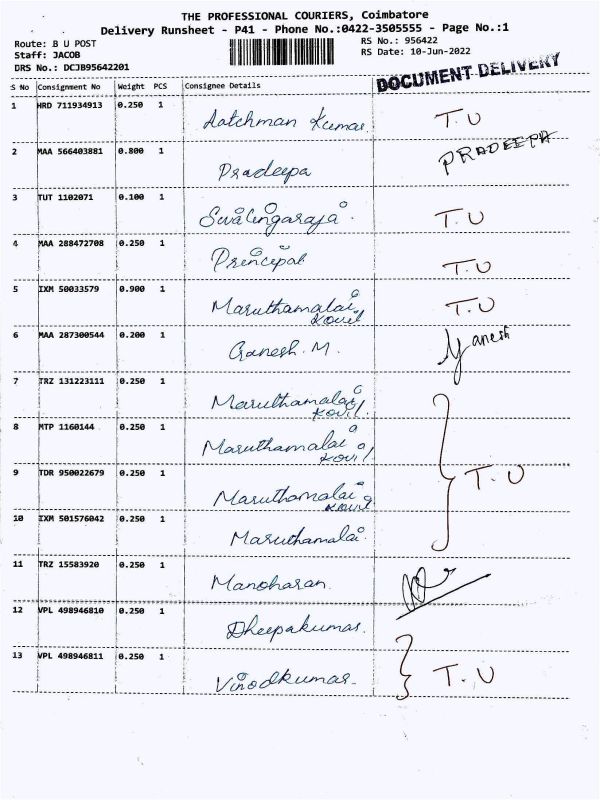 THE PROFESSIONAL COURIERS, Coimbatore
Delivery Runsheet - P41 - Phone No.:0422-3505555 - Page No.:1
Route: B U POST RS No.: 956422
Staff: JACOB RS Date: 10-Jun-2022
DRS No.: DCJB95642201
DOCUMENT DELIVERY
S No Consignment No Weight PCS Consignee Details
1 HRD 711934913 0.250 1 Aatchman Kumar. T.U
2 MAA 566403881 0.800 1 Pradeepa PRADEEPA
3 TUT 1102071 0.100 1 Sivalingaraja. T.U
4 MAA 288472708 0.250 1 Principal T.U
5 IXM 50033579 0.900 1 Maruthamalai T.U
Kovil
6 MAA 287300544 0.200 1 Ganesh. M. Ganesh
7 TRZ 131223111 0.250 1 Maruthamalai
Kovil.
8 MTP 1160144 0.250 1 Maruthamalai
Kovil
9 TDR 950022679 0.250 1 Maruthamalai T.U
Kovil
10 IXM 501576042 0.250 1 Maruthamalai.
11 TRZ 15583920 0.250 1 Manoharan.
12 VPL 498946810 0.250 1 Dheepakumar.
13 VPL 498946811 0.250 1 Vinodkumar. T.U